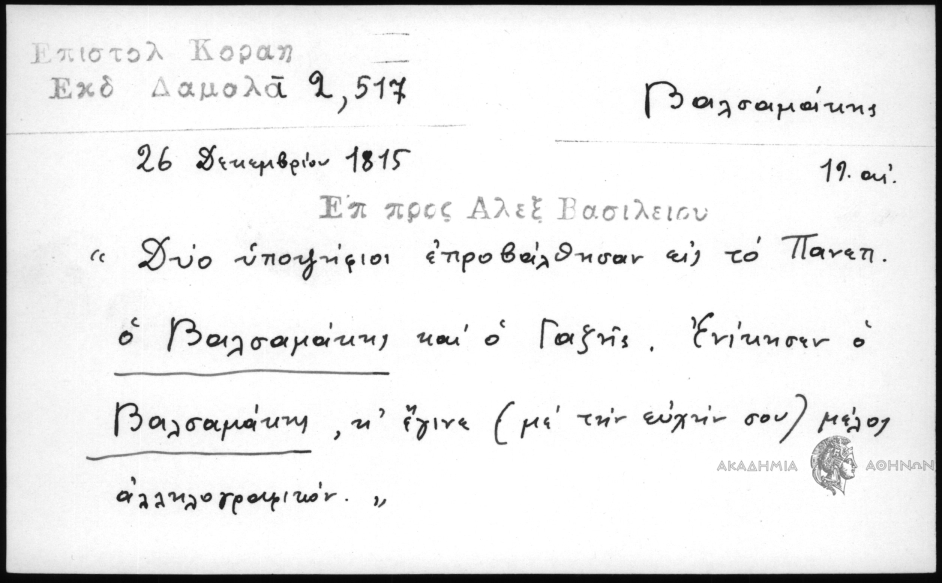 Επιστολ Κοραη
Εκδ Δαμαλᾶ 2,517
Βαλσαμάκης
26 Δεκεμβρίου 1815
19. αἰ.
Ἐπ προς Αλεξ Βασιλειου
“ Δύο ὑποψήφιοι ἐπροβάλθησαν εἰς τό Πανεπ.
ὁ Βαλσαμάκης καί ὁ Γαζῆς. Ἐνίκησεν ὁ
Βαλσαμάκης, κ' ἔγινε (μέ τήν εὐχήν σου) μέλος
ΑΚΑΔΗΜΙΑ ΑΘΗΝΩΝ
ἀλληλογραφικόν. „